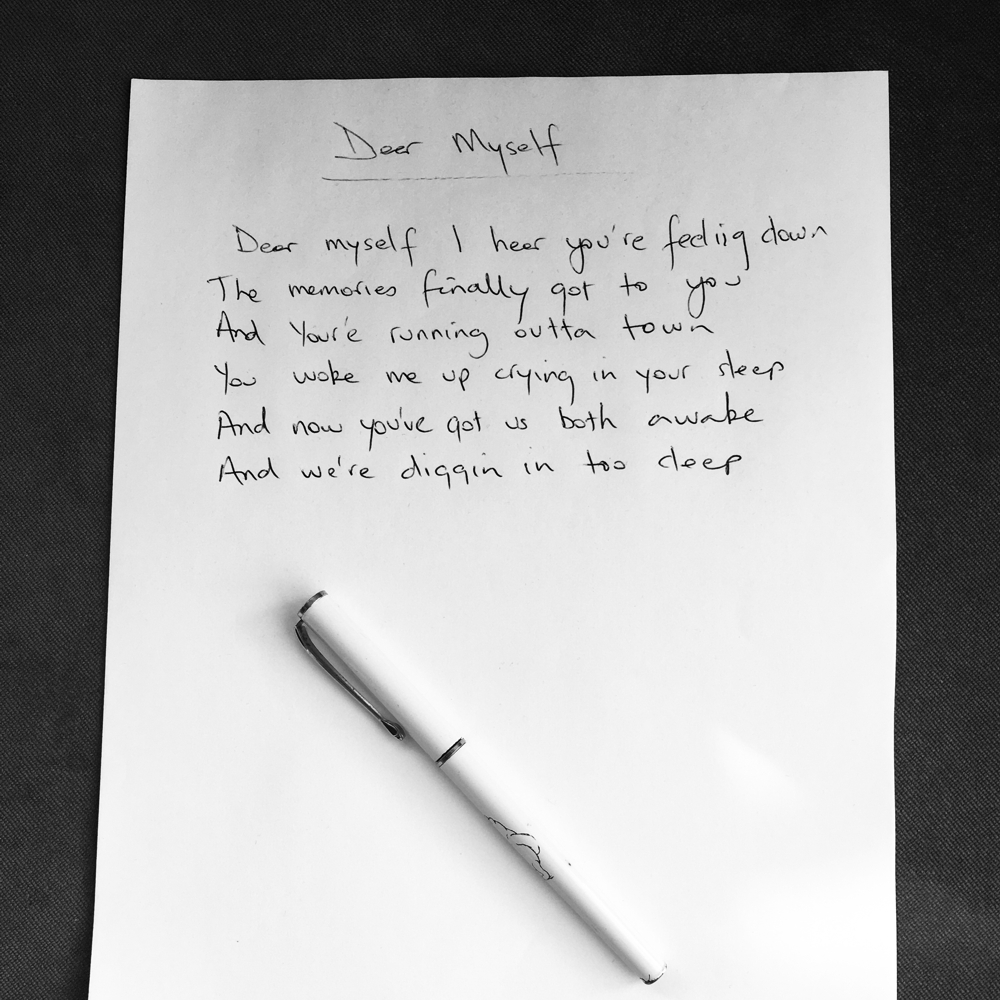 Dear Myself
Dear myself I hear you're feeling down
The memories finally got to you
And Your'e running outta town
You woke me up crying in your sleep
And now you've got us both awake
And we're diggin in too deep